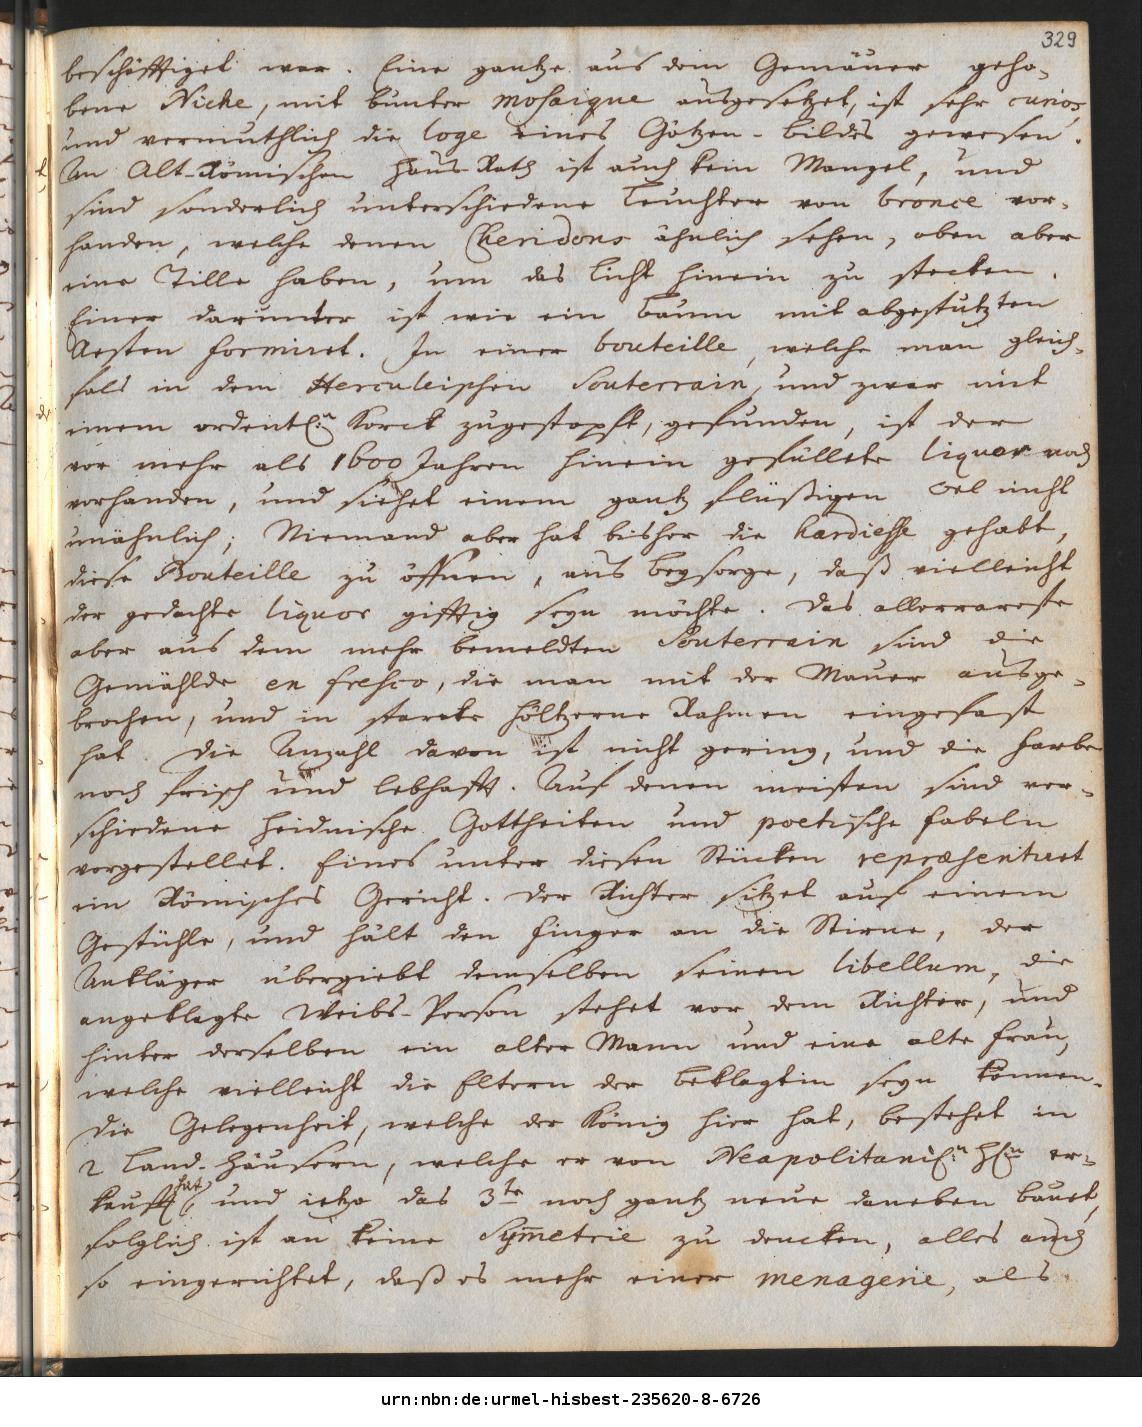 329
beschäfftiget war. Eine gantze aus dem Gemäuer geho-
bene Niche, mit bunter mosaique ausgesetzet, ist sehr curios,
und vermuthlich die loge eines Götzen-Bildes gewesen.
An Alt-Römischen Haus-Rath ist auch kein Mangel, und
sind sonderlich unterschiedene Leuchter von bronce vor-
handen, welche denen Gheridons ähnlich sehen, oben aber
eine Tille haben, um das Licht hinein zu stecken.
Einer darunter ist wie ein Baum mit abgestutzten
Aesten formiret. In einer bouteille, welche man gleich-
fals in dem Herculeischen Souterrain, und zwar mit
einem ordentl:n Korck zugestopft, gefunden, ist der
vor mehr als 1600 Jahren hinein gefüllete liquor noch
vorhanden, und siehet einem gantz flüßigen Oel nicht
unähnlich; Niemand aber hat bisher die hardiesse gehabt,
diese Bouteille zu öffnen, aus Beysorge, daß vielleicht
der gedachte liquor gifftig seyn möchte. Das allerrareste
aber aus dem mehr bemeldten Souterrain sind die
Gemählde en fresco, die man mit der Mauer ausge-
brochen, und in starcke höltzerne Rahmen eingefast
hat. Die Anzahl davon ist nicht gering, und die Farbe
noch frisch und lebhafft. Auf denen meisten sind ver-
schiedene heidnische Gottheiten und poetische Fabeln
vorgestellet. Eines unter diesen Stücken repræsentiret
ein Römisches Gericht. Der Richter sitzet auf einem
Gestühle, und hält den Finger an die Stirne, der
Ankläger übergiebt demselben seinen libellum, die
angeklagte Weibs-Person stehet vor dem Richter, und
hinter derselben ein alter Mann und eine alte Frau,
welche vielleicht die Eltern der Beklagtin seyn können.
Die Gelegenheit, welche der König hier hat, bestehet in
2 Land-Häusern, welche er von Neapolitani: H:n er-
kaufft hat, und ietzo das 3te noch gantz neue daneben bauet,
folglich ist an keine Sym̄etrie zu dencken, alles auch
so eingerichtet, daß es mehr einer menagerie, als
urn:nbn:de:urmel-hisbest-235620-8-6726